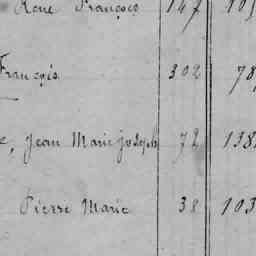 René François 147
François 302 78
Jean Marie joseph 72 138
Pierre Marie 38 103